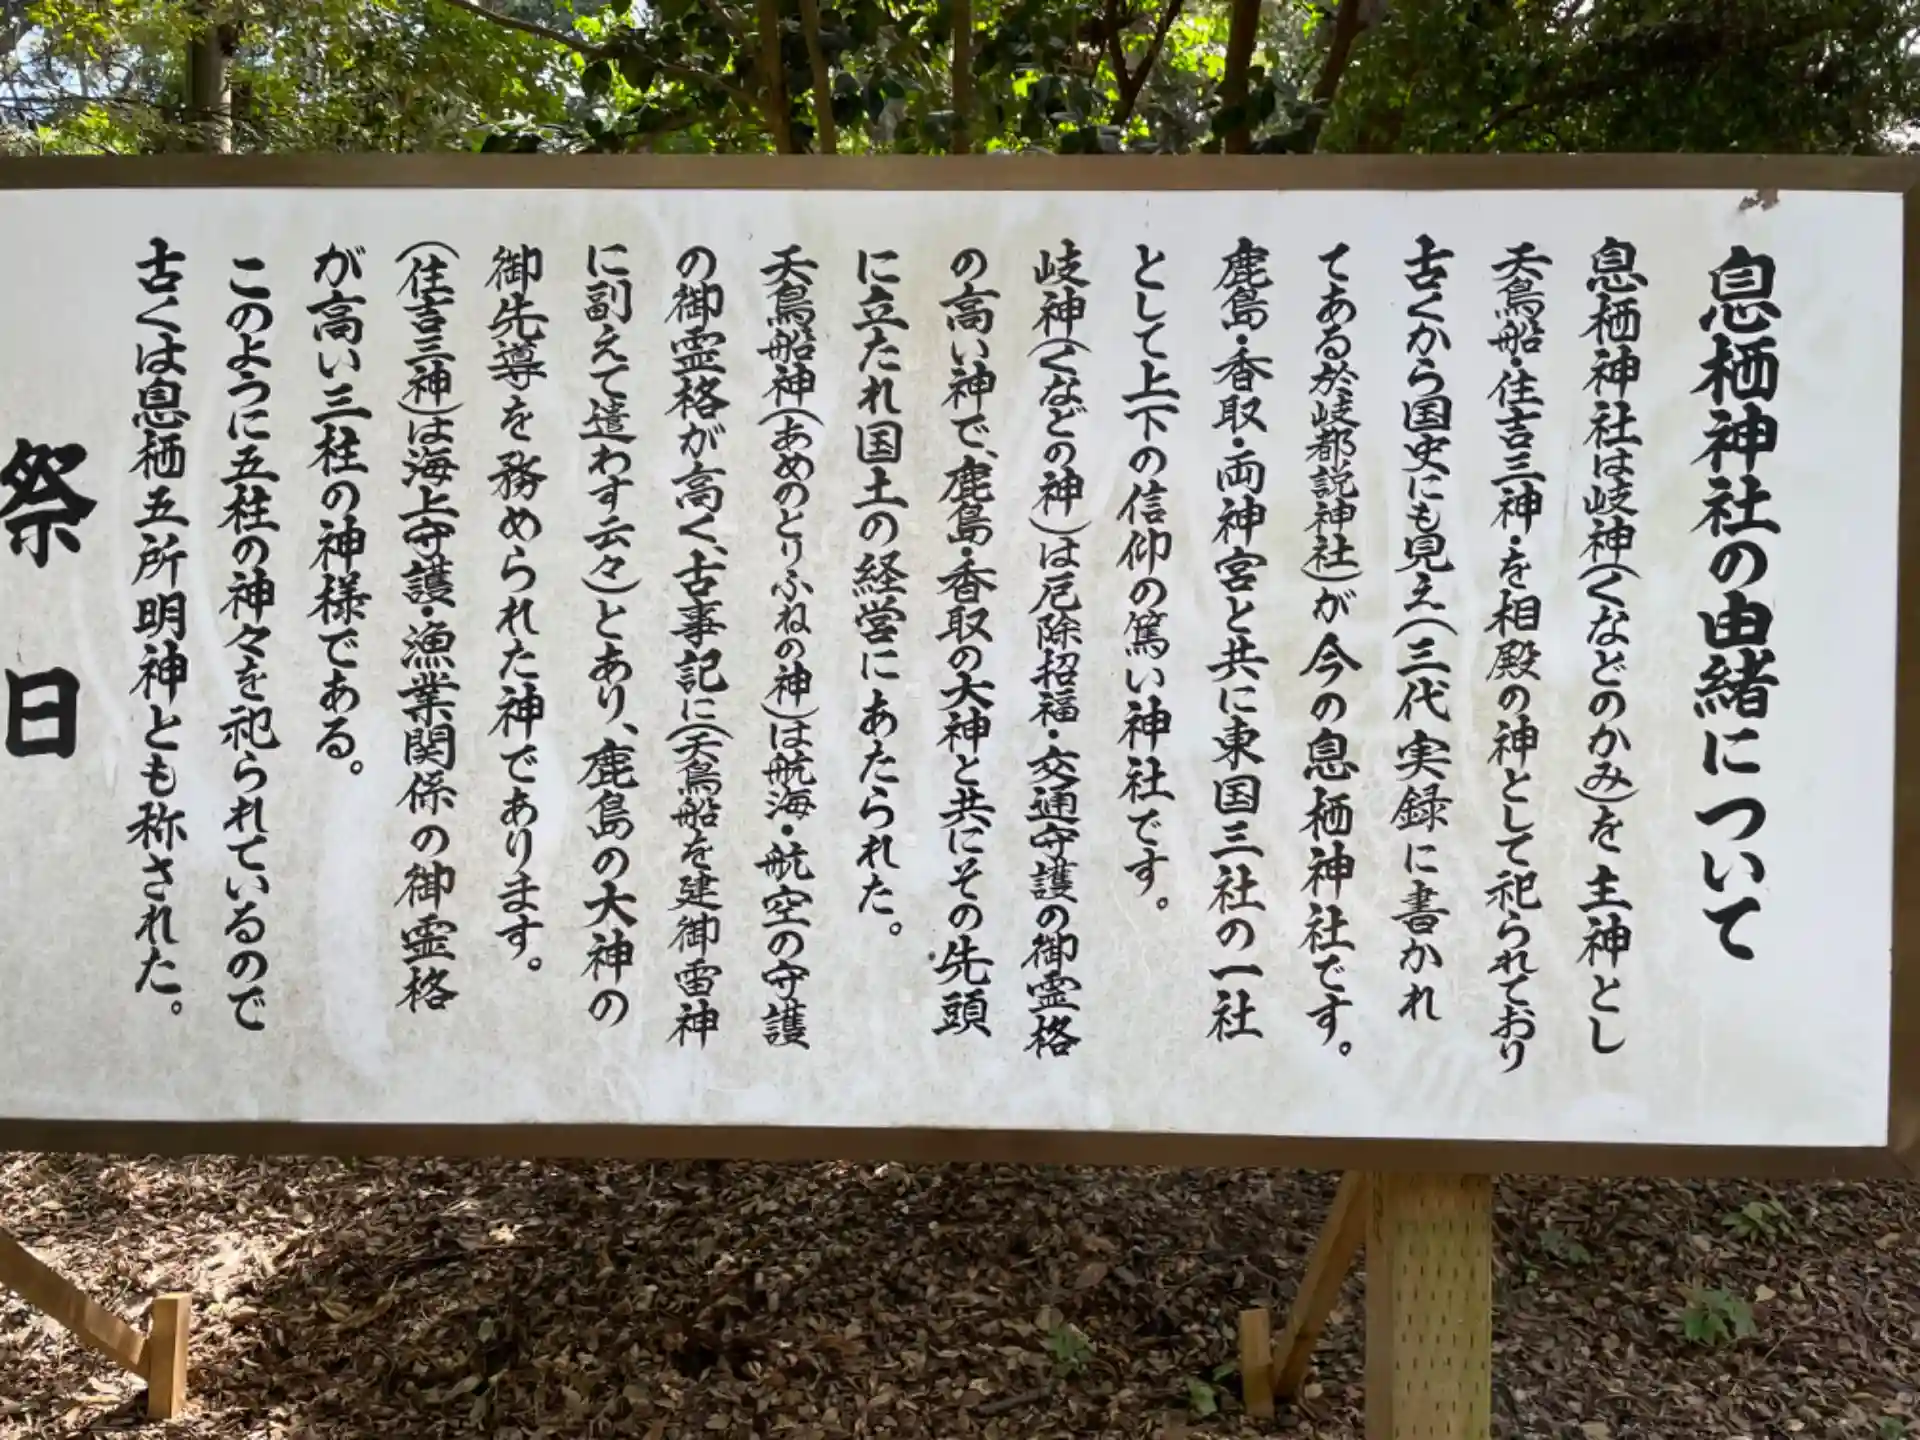 息栖神社の由緒について
息栖神社は岐神(くなどのかみ)を主神とし
天鳥船・住吉三神・を相殿の神として祀られており
古くから国史にも見え(三代実録に書かれ
てある於岐都説神社)が今の息栖神社です。
鹿島・香取・両神宮と共に東国三社の一社
として上下の信仰の篤い神社です。
岐神(くなどの神)は厄除招福・交通守護の御霊格
の高い神で、鹿島・香取の大神と共にその先頭
に立たれ国土の経営にあたられた。
天鳥船神(あめのとりふねの神)は航海・航空の守護
の御霊格が高く、古事記に(天鳥船を建御雷神
に副えて遣わす云々)とあり、鹿島の大神の
御先導を務められた神であります。
(住吉三神)は海上守護・漁業関係の御霊格
が高い三柱の神様である。
このように五柱の神々を祀られているので
古くは息栖五所明神とも称された。
祭日